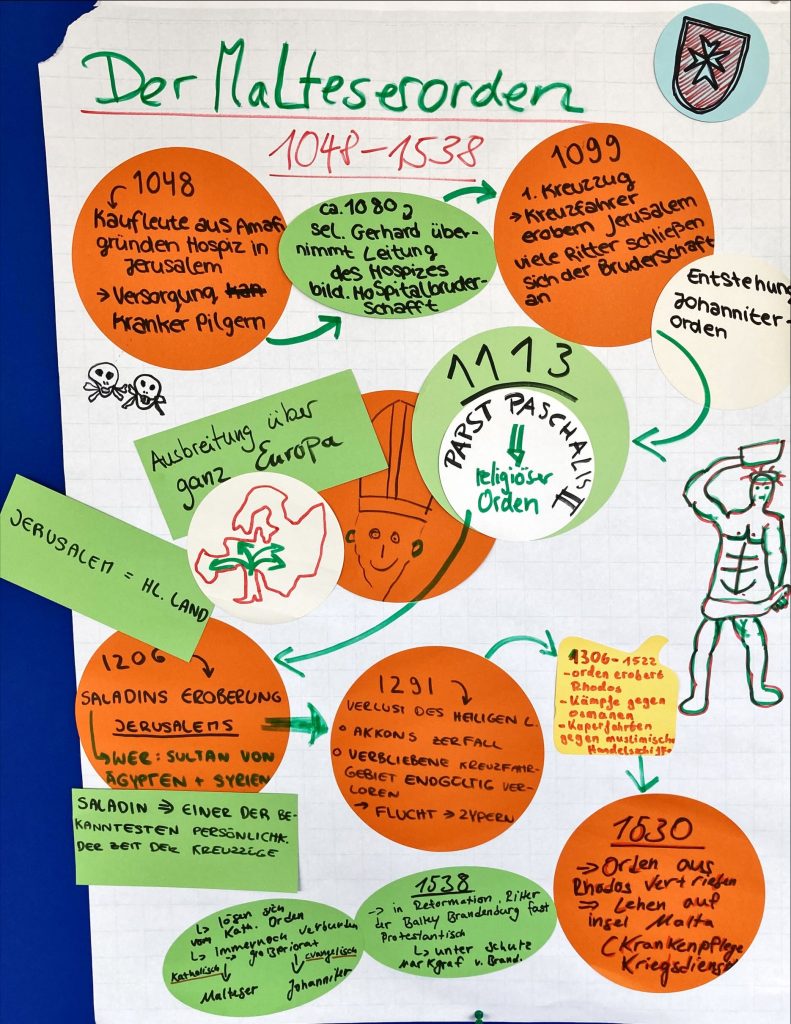 Der Malteserorden
1048-1538
1048
Kaufleute aus Amafi
gründen Hospiz in
Jerusalem
→ Versorgung
Kranker Pilgern
ca. 1080
sel. Gerhard über-
nimmt Leitung
des Hospizes
bild. Hospitalbruder-
schafft
1099
1. Kreuzzug
→ Kreuzfahrer
erobern Jerusalem
viele Ritter schließen
sich der Bruderschaft
an
Entstehung
Johanniter-
orden
1113
PAPST PASCHALIS II
religiöser
Orden
Ausbreitung über
ganz Europa
JERUSALEM = HL. LAND
1206
SALADINS EROBERUNG
JERUSALEMS
↳ WER: SULTAN VON
ÄGYPTEN + SYRIEN
SALADIN ⇒ EINER DER BE-
KANNTESTEN PERSÖNLICHK.
DER ZEIT DER KREUZZÜGE
1291
VERLUST DES HEILIGEN L.
○ AKKONS ZERFALL
○ VERBLIEBENE KREUZFAHR-
GEBIET ENDGÜLTIG VER-
LOREN
→ FLUCHT → ZYPERN
1306-1522
- orden erobert
Rhodos
- Kämpfe gegen
Osmanen
- Kaperfahrten
gegen muslimische
Handelsschiffe
1530
→ Orden aus
Rhodos vertrieben
⇒ Lehen auf
insel Malta
(Krankenpflege
Kriegsdienst
1538
→ in Reformation, Ritter
der Balley Brandenburg fast
Protestantisch
↳ unter Schutz
Markgraf v. Brand.
↳ lösen sich
vom Kath. Orden
↳ Immernoch verbunden
→ großpriorat
Katholisch evangelisch
Malteser Johanniter